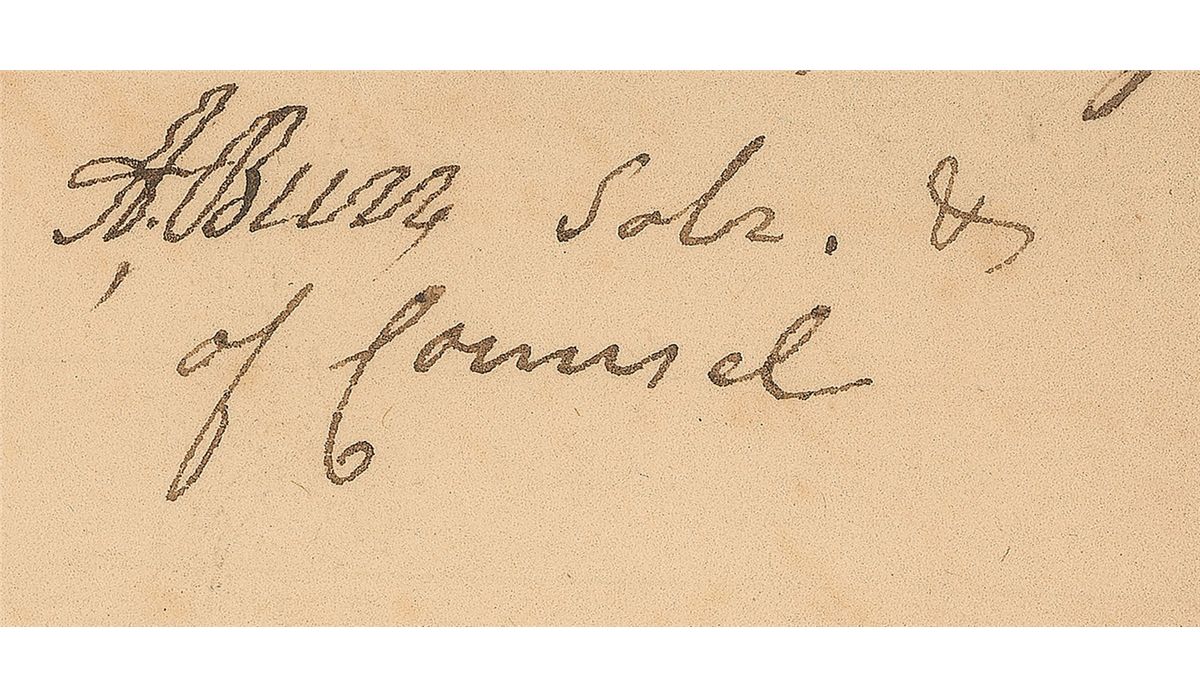 A. Burr, Solr. &
of Counsel